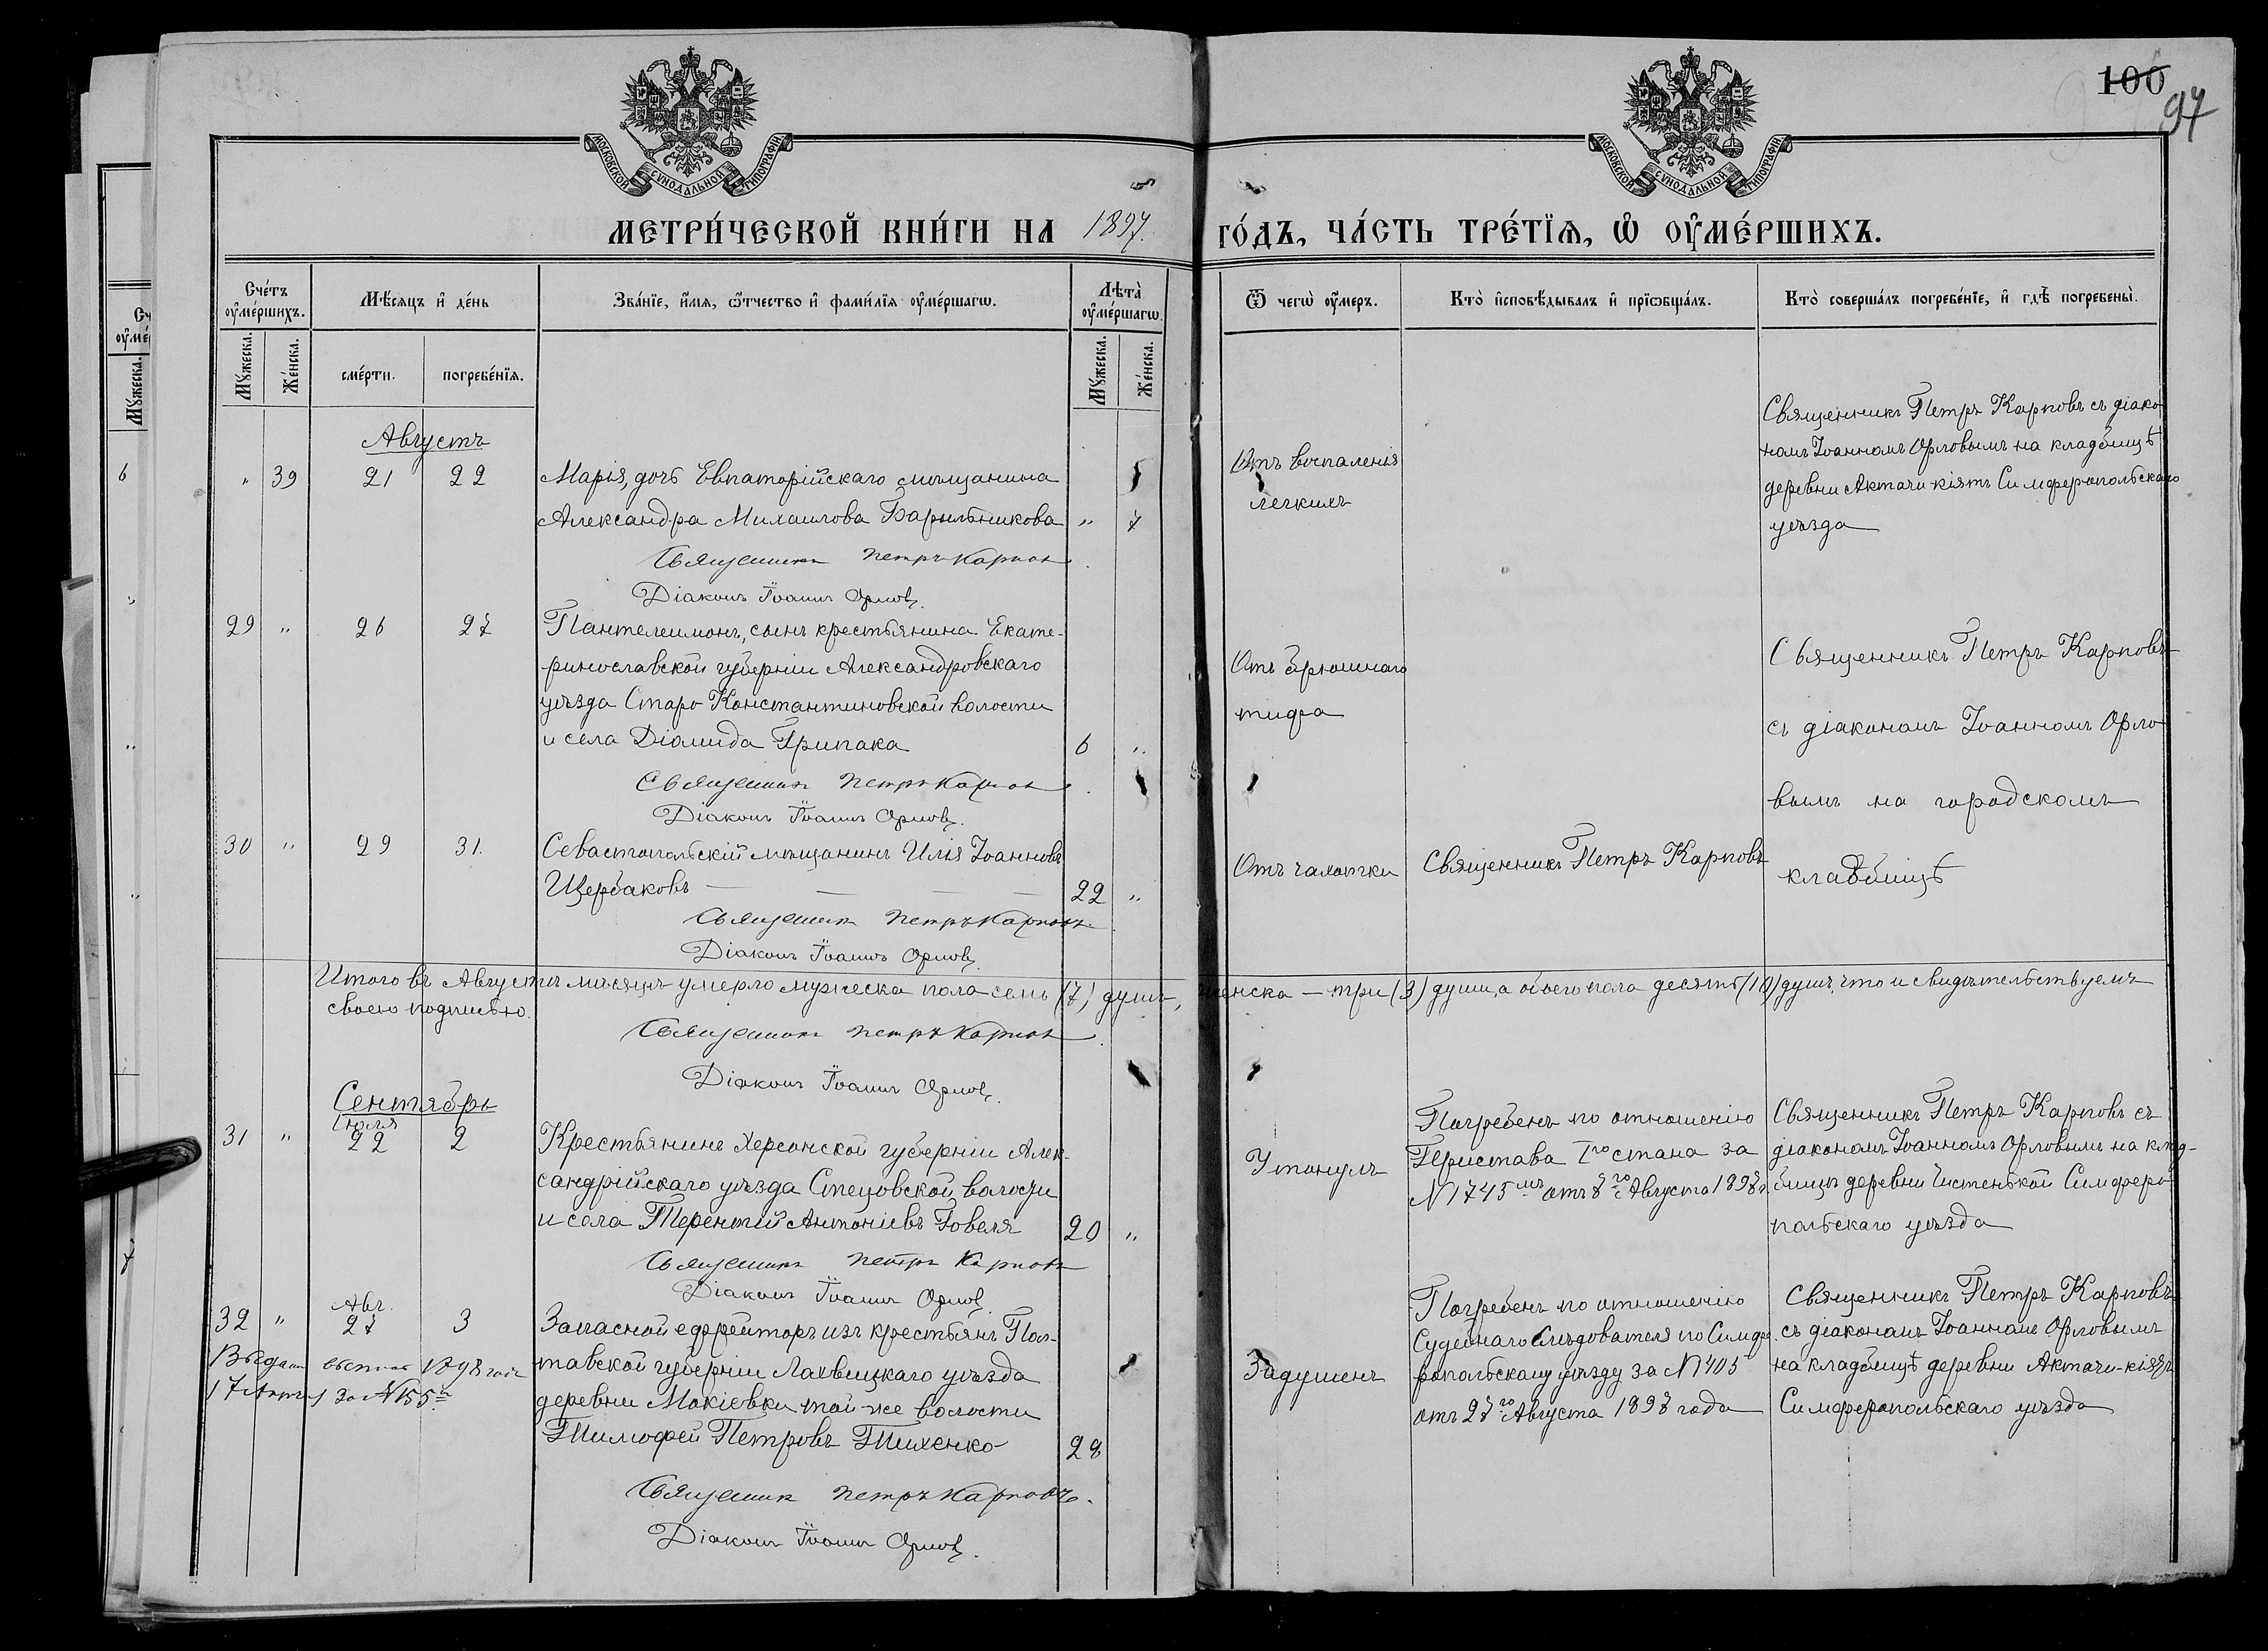 100
97
МОСКОВСКОЙ СѴНОДАЛЬНОЙ ТИПОГРАФІИ
МОСКОВСКОЙ СѴНОДАЛЬНОЙ ТИПОГРАФІИ
МЕТРИ́ЧЕСКОЙ КНИ́ГИ НА 1897.
ГО́ДЪ, ЧА́СТЬ ТРЕ́ТЇѦ, Ѡ҆ ОУ҆МЕ́РШИХЪ.
Сче́тъ оу҆ме́ршихъ.
Мꙋ́жеска.
Же́нска.
Мѣ́сѧцъ и҆ де́нь
сме́рти.
погребе́нїѧ.
Зва́нїе, и҆́мѧ, ѻ҆́тчество и҆ фами́лїѧ оу҆ме́ршагѡ.
Лѣ́та̀ оу҆ме́ршагѡ.
Мꙋ́жеска.
Же́нска.
Ѿ чегѡ̀ оу҆́меръ.
Кто̀ и҆сповѣ́дывалъ и҆ прїѡбща́лъ.
Кто̀ соверша́лъ погребе́нїе, и҆ гдѣ̀ погребены̀.
Августъ
" 39 21 22
Марія, дочь Евпаторійскаго мѣщанина
Александра Михаилова Барыльникова " 7
Священникъ Петръ Карповъ
Діаконъ Іоаннъ Орловъ.
Отъ воспаленія
легкихъ
Священникъ Петръ Карповъ съ діако-
номъ Іоанномъ Орловымъ на кладбищѣ
деревни Актачи-кіятъ Симферопольскаго
уѣзда
29 " 26 27
Пантелеимонъ, сынъ крестьянина Екате-
ринославской губерніи Александровскаго
уѣзда Старо Константиновской волости
и села Діомида Грипака 6 "
Священникъ Петръ Карповъ
Діаконъ Іоаннъ Орловъ.
Отъ брюшнаго
тифа
Священникъ Петръ Карповъ
съ діакономъ Іоанномъ Орло-
вымъ на городскомъ
кладбищѣ
30 " 29 31.
Севастопольскій мѣщанинъ Илія Іоанновъ
Щербаковъ 22 "
Священникъ Петръ Карповъ
Діаконъ Іоаннъ Орловъ
Отъ чахотки
Священникъ Петръ Карповъ
Итого въ Августѣ мѣсяцѣ умерло мужеска пола семь (7) душъ, женска — три (3) души, а обоего пола десять (10) душъ, что и свидѣтельствуемъ
своею подписью.
Священникъ Петръ Карповъ
Діаконъ Іоаннъ Орловъ.
Сентябрь
Іюля
31 " 22 2
Крестьянинъ Херсонской губерніи Алек-
сандрійскаго уѣзда Стецовской волости
и села Терентій Антоніевъ Говеля 20 "
Священникъ Петръ Карповъ
Діаконъ Іоаннъ Орловъ
Утонулъ
Погребенъ по отношенію
Пристава Iго стана за
N 1745мъ отъ 8го Августа 1897 г.
Священникъ Петръ Карповъ съ
діакономъ Іоанномъ Орловымъ на клад-
бищѣ деревни Чистенькой Симферо-
польскаго уѣзда
Авг.
32 " 27 3
Запасной ефрейторъ изъ крестьянъ Пол-
тавской губерніи Лахвицкаго уѣзда
деревни Мокіевки той-же волости
Тимофей Петровъ Тихенко 28
Священникъ Петръ Карповъ.
Діаконъ Іоаннъ Орловъ.
1898 года
17 за N 155
Задушенъ
Погребенъ по отношенію
Судебнаго Слѣдователя по Симфе-
ропольскому уѣзду за N 405
отъ 27го Августа 1897 года
Священникъ Петръ Карповъ
съ діакономъ Іоанномъ Орловымъ
на кладбищѣ деревни Актачи-кіятъ
Симферопольскаго уѣзда